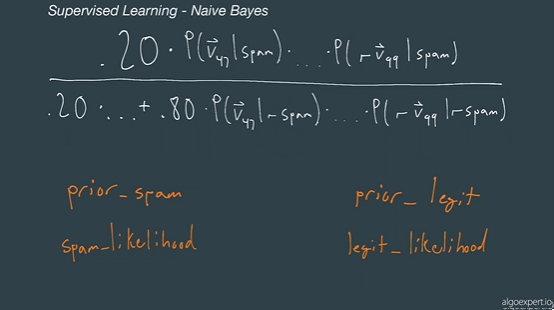 Supervised Learning - Naive Bayes
.20 · P(v⃗₄₇|spam) · ... · P(¬v⃗₉₉|spam)
.20 · ... + .80 · P(v⃗₄₇|¬spam) · ... · P(¬v⃗₉₉|¬spam)
prior_spam prior_legit
spam_likelihood legit_likelihood
algoexpert.io